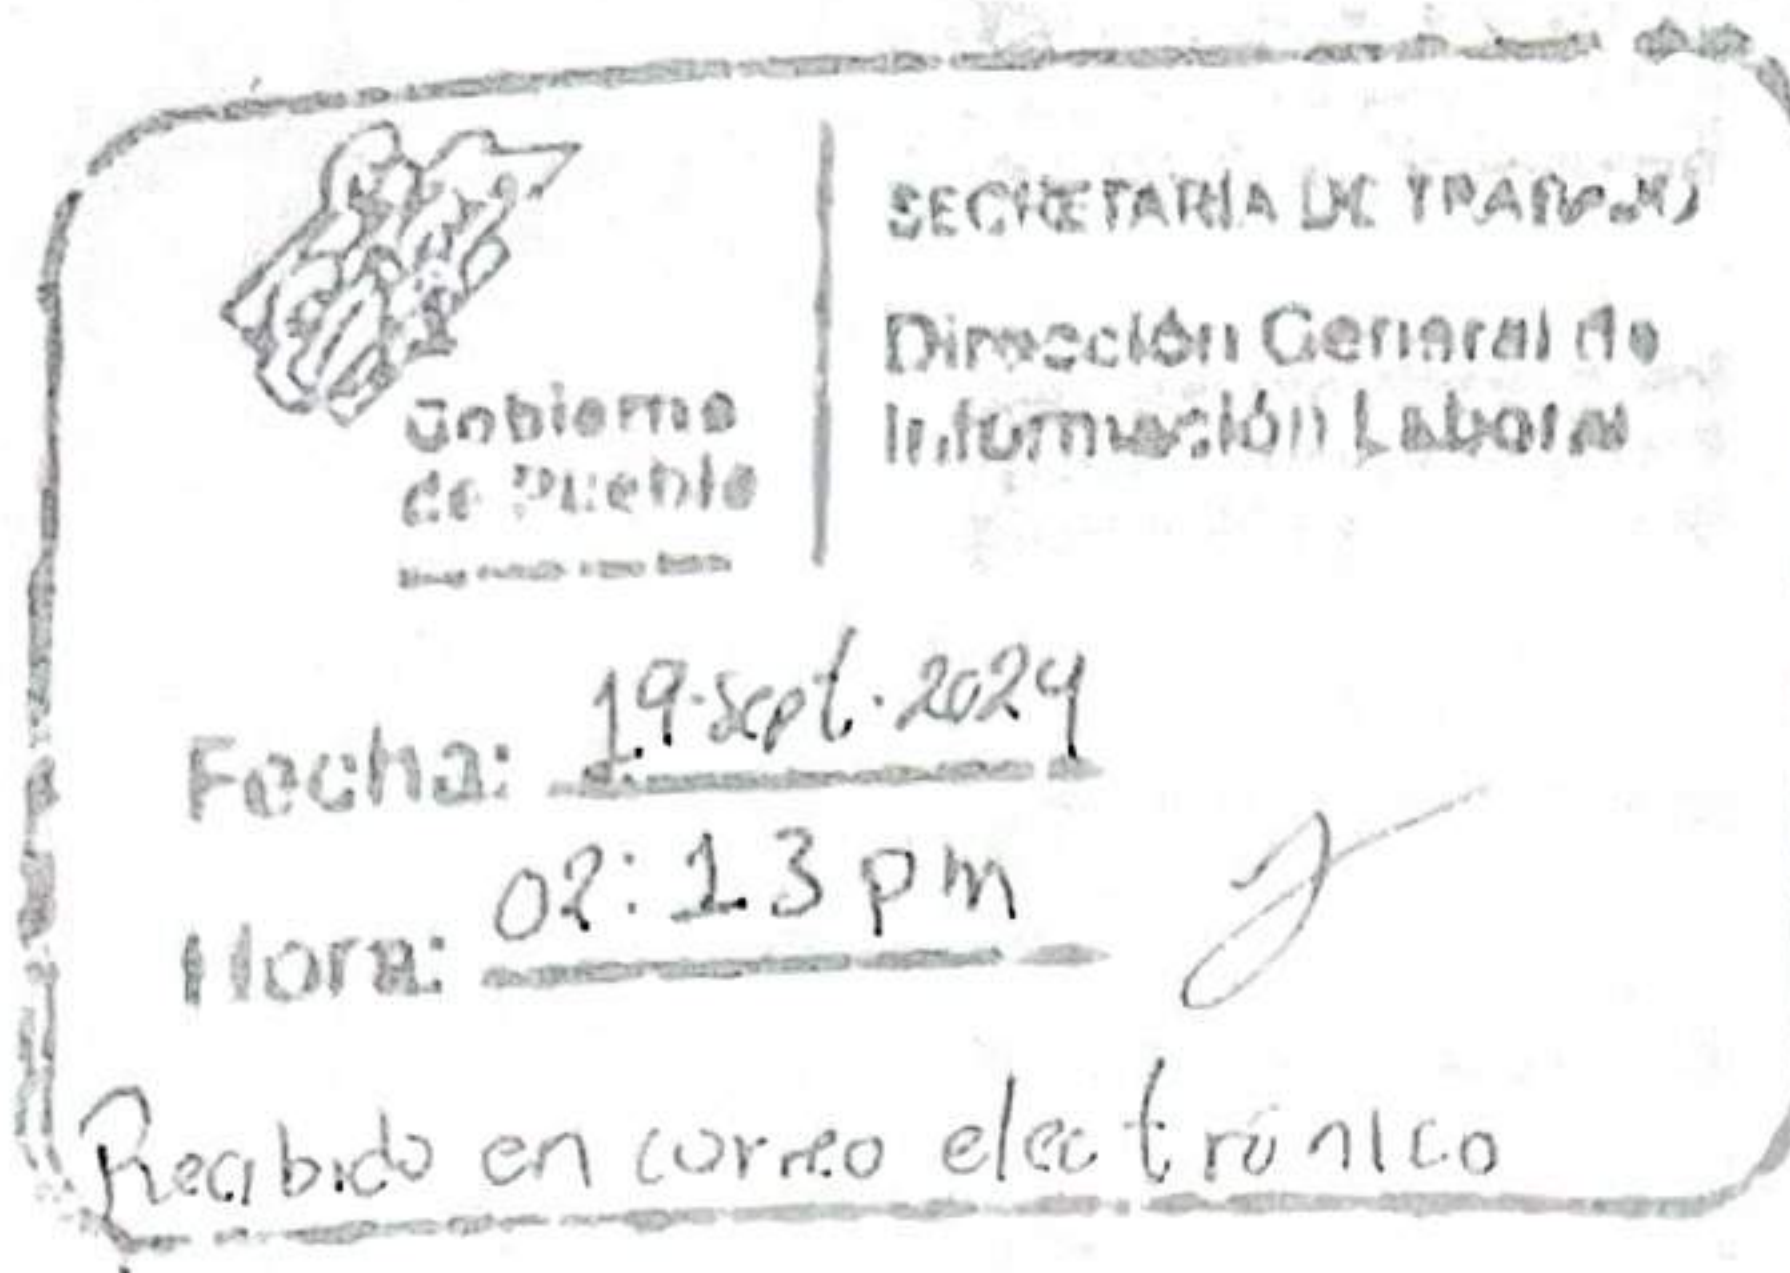 Gobierno
de Puebla
SECRETARÍA DE TRABAJO
Dirección General de
Información Laboral
Fecha: 19-sept-2024
Hora: 02:13 pm
Recibido en correo electrónico